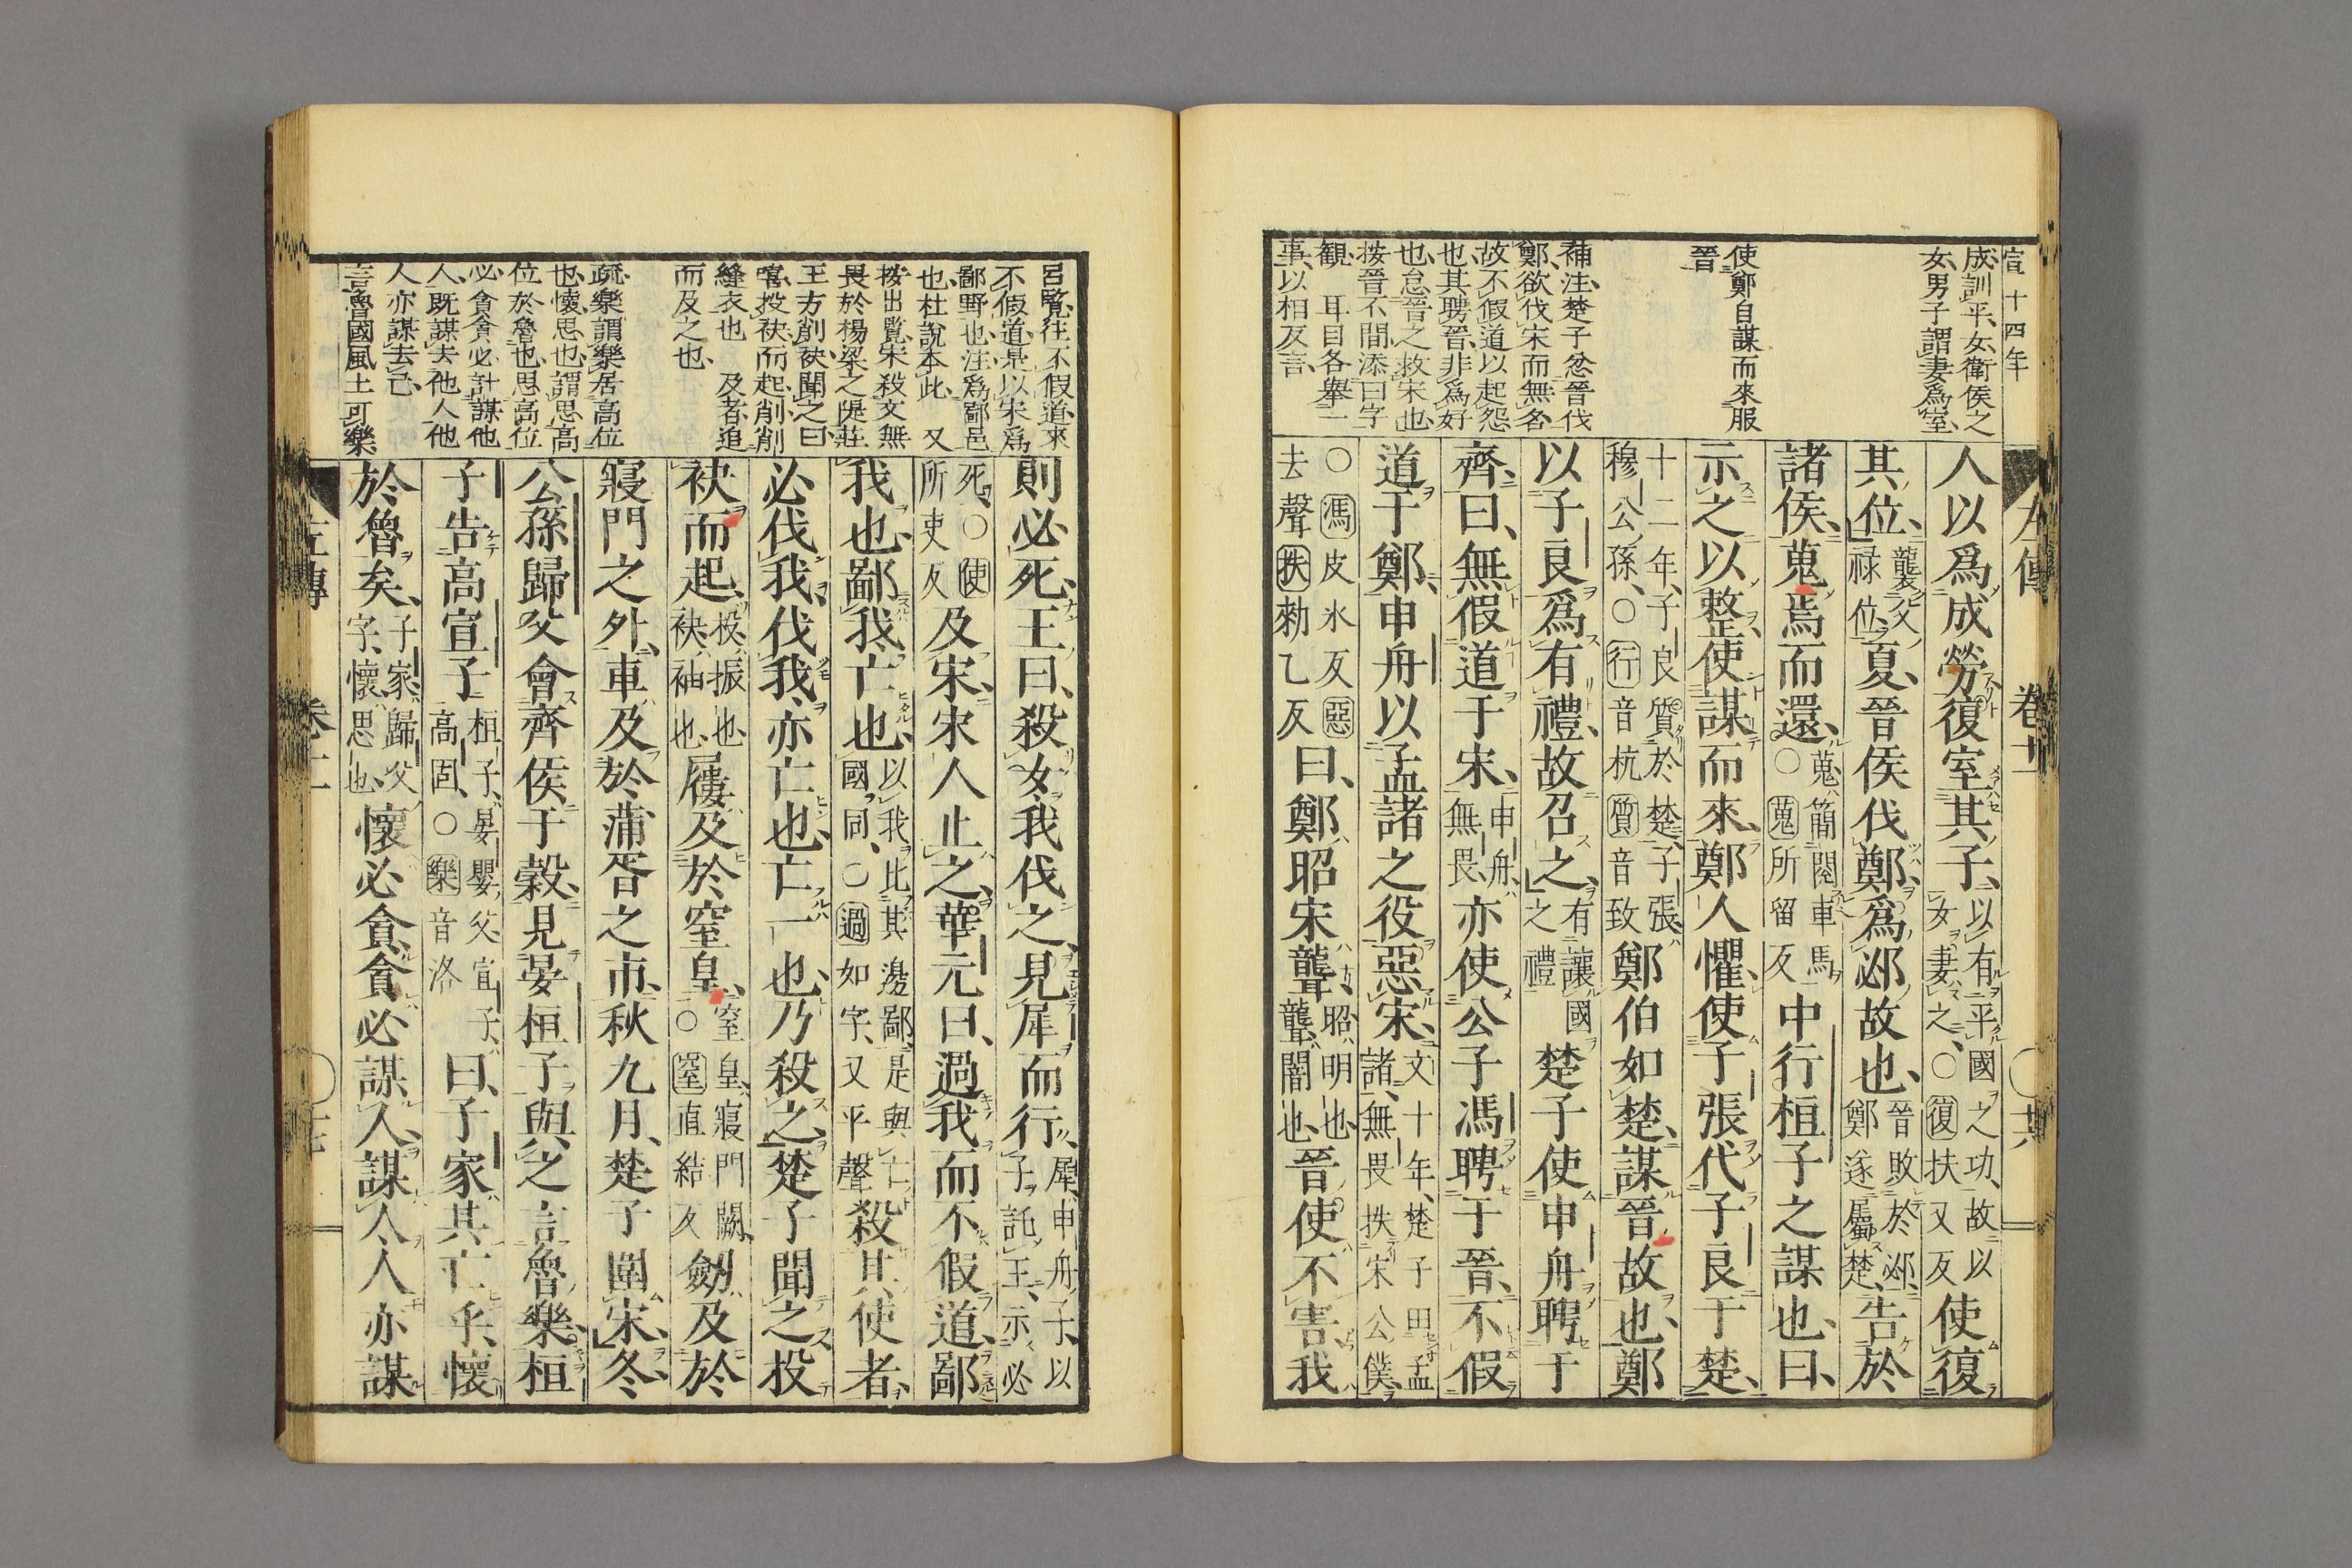 宣十四年
成訓平、女、衛侯之
女、男子謂妻爲室、
使鄭自謀而來服
晉
補注、楚子忿晉伐
鄭、欲伐宋而無名、
故不假道以起怨
也、其聘晉、非爲好
也、怠晉之救宋也、
按晉不間添曰字
觀　耳目各擧一
事、以相反言、
左傳　卷十一
人以爲成勞、復室其子、以有平國之功、故以
女妻之、○復扶又反使復
其位、襲父
祿位夏、晉侯伐鄭、爲邲故也、晉敗於邲、
鄭遂屬楚、告於
諸侯、蒐焉而還、蒐、簡閱車馬
○蒐所留反中行桓子之謀也、曰、
示之以整、使謀而來、鄭人懼、使子張代子良于楚、
十二年、子良質於楚、子張、
穆公孫、○行音杭質音致鄭伯如楚、謀晉故也、鄭
以子良爲有禮、故召之、有讓國
之禮楚子使申舟聘于
齊、曰、無假道于宋、申舟、
無畏、亦使公子馮聘于晉、不假
道于鄭、申舟以孟諸之役惡宋、文十年、楚子田孟
諸、無畏抶宋公僕、
○馮皮冰反惡
去聲抶勑乙反曰、鄭昭宋聾、昭、明也
聾、闇也、晉使不害、我
呂覽、往不假道、來
不假道、是以宋爲
鄙野也、注、爲鄙邑
也、杜説本此、　又
按出覽、宋殺文無
畏於楊梁之隄、莊
王方削袂、聞之曰
嘻、投袂而起、削、削
縫衣也　及者、追
而及之也、
疏、樂謂樂居高位
也、懷、思也、謂思高
位於魯也、思高位
必貪、貪必計謀他
人、既謀去他人、他
人亦謀去己、
言魯國風土可樂
則必死、王曰、殺女、我伐之、見犀而行、犀、申舟子、以
子託王、示必
死、○使
所吏反及宋、宋人止之、華元曰、過我而不假道、鄙
我也、鄙我、亡也、以我比其邊鄙、是與亡
國同、○過如字、又平聲殺其使者、
必伐我、伐我、亦亡也、亡一也、乃殺之、楚子聞之、投
袂而起、投、振也
袂、袖也、屨及於窒皇、窒皇、寢門闕、
○窒直結反劒及於
寢門之外、車及於蒲胥之市、秋九月、楚子圍宋、冬、
公孫歸父會齊侯于穀、見晏桓子、與之言魯樂、桓
子告高宣子、桓子、晏嬰父、宣子、
高固、○樂音洛曰、子家其亡乎、懷
於魯矣、子家、歸父
字、懷、思也、懷必貪、貪必謀人、謀人、人亦謀
左傳　卷十一